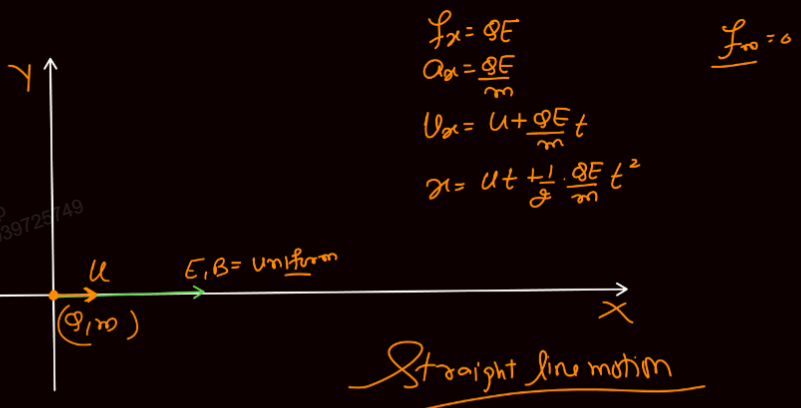 fx = QE
ax = QE/m
Ux = u + QE/m t
x = ut + 1/2 . QE/m t²
fm = 0
Y
39725749
u
E, B = uniform
(Q, m)
X
Straight line motion